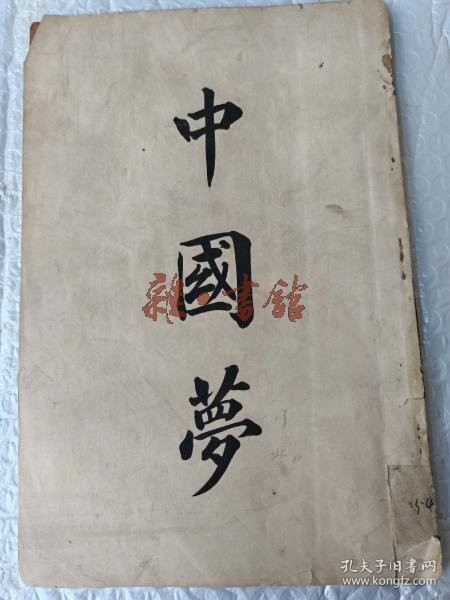 中國夢
雜·書館
54
孔夫子旧书网
www.kongfz.com